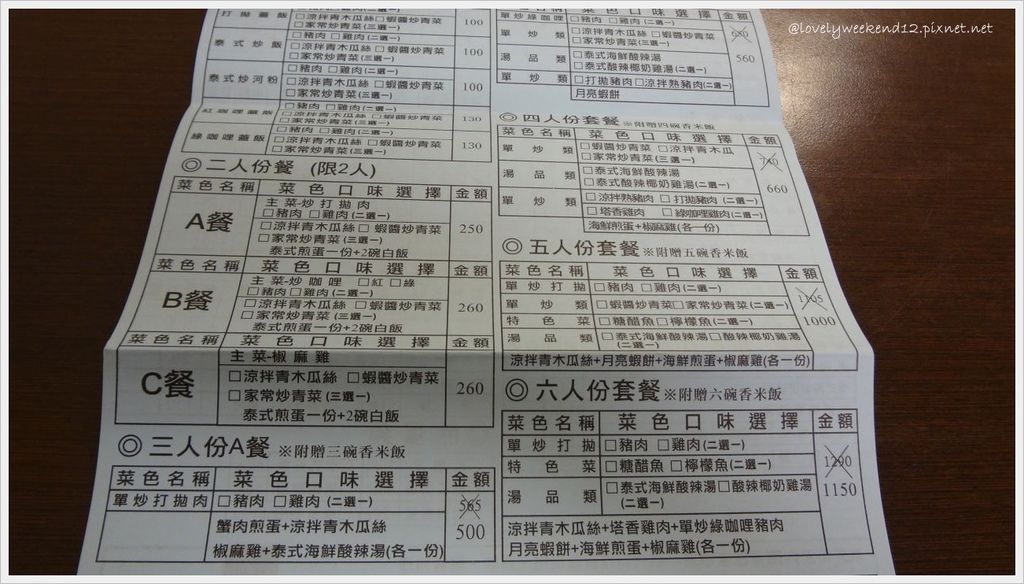 @lovelyweekend12.pixnet.net
打拋蓋飯
□涼拌青木瓜絲 □蝦醬炒青菜
□家常炒青菜(三選一)
100
泰式炒飯
□豬肉 □雞肉(二選一)
□涼拌青木瓜絲 □蝦醬炒青菜
□家常炒青菜(三選一)
100
泰式炒河粉
□豬肉 □雞肉(二選一)
□涼拌青木瓜絲 □蝦醬炒青菜
□家常炒青菜(三選一)
100
紅咖哩蓋飯
□豬肉 □雞肉(二選一)
□涼拌青木瓜絲 □蝦醬炒青菜
□家常炒青菜(三選一)
130
綠咖哩蓋飯
□豬肉 □雞肉(二選一)
□涼拌青木瓜絲 □蝦醬炒青菜
□家常炒青菜(三選一)
130
◎二人份餐 (限2人)
菜色名稱 菜色口味選擇 金額
A餐
主菜-炒打拋肉
□豬肉 □雞肉(二選一)
□涼拌青木瓜絲 □蝦醬炒青菜
□家常炒青菜(三選一)
泰式煎蛋一份+2碗白飯
250
菜色名稱 菜色口味選擇 金額
B餐
主菜-炒咖哩 □紅 □綠
□豬肉 □雞肉(二選一)
□涼拌青木瓜絲 □蝦醬炒青菜
□家常炒青菜(三選一)
泰式煎蛋一份+2碗白飯
260
菜色名稱 菜色口味選擇 金額
C餐
主菜-椒麻雞
□涼拌青木瓜絲 □蝦醬炒青菜
□家常炒青菜(三選一)
泰式煎蛋一份+2碗白飯
260
◎三人份A餐 ※附贈三碗香米飯
菜色名稱 菜色口味選擇 金額
單炒打拋肉 □豬肉 □雞肉(二選一)
565
500
蟹肉煎蛋+涼拌青木瓜絲
椒麻雞+泰式海鮮酸辣湯(各一份)
單炒綠咖哩 □豬肉 □雞肉(二選一)
單炒類
□涼拌青木瓜絲 □蝦醬炒青菜
□家常炒青菜(二選一)
湯品類
□泰式海鮮酸辣湯
□泰式酸辣椰奶雞湯(二選一)
560
單炒類 □打拋豬肉□涼拌熟豬肉(二選一)
月亮蝦餅
◎四人份套餐 ※附贈四碗香米飯
菜色名稱 菜色口味選擇 金額
單炒類
□蝦醬炒青菜 □涼拌青木瓜
□家常炒青菜(三選一)
740
660
湯品類
□泰式海鮮酸辣湯
□泰式酸辣椰奶雞湯(二選一)
單炒類
□涼拌熟豬肉 □打拋豬肉(二選一)
□塔香雞肉 □綠咖哩雞肉(二選一)
海鮮煎蛋+椒麻雞(各一份)
◎五人份套餐 ※附贈五碗香米飯
菜色名稱 菜色口味選擇 金額
單炒打拋 □豬肉 □雞肉(二選一)
單炒類 □蝦醬炒青菜□家常炒青菜(二選一)
1105
1000
特色菜 □糖醋魚 □檸檬魚(二選一)
湯品類 □泰式海鮮酸辣湯□酸辣椰奶雞湯
(二選一)
涼拌青木瓜絲+月亮蝦餅+海鮮煎蛋+椒麻雞(各一份)
◎六人份套餐 ※附贈六碗香米飯
菜色名稱 菜色口味選擇 金額
單炒打拋 □豬肉 □雞肉(二選一)
特色菜 □糖醋魚 □檸檬魚(二選一)
1290
1150
湯品類 □泰式海鮮酸辣湯□酸辣椰奶雞湯
(二選一)
涼拌青木瓜絲+塔香雞肉+單炒綠咖哩豬肉
月亮蝦餅+海鮮煎蛋+椒麻雞(各一份)